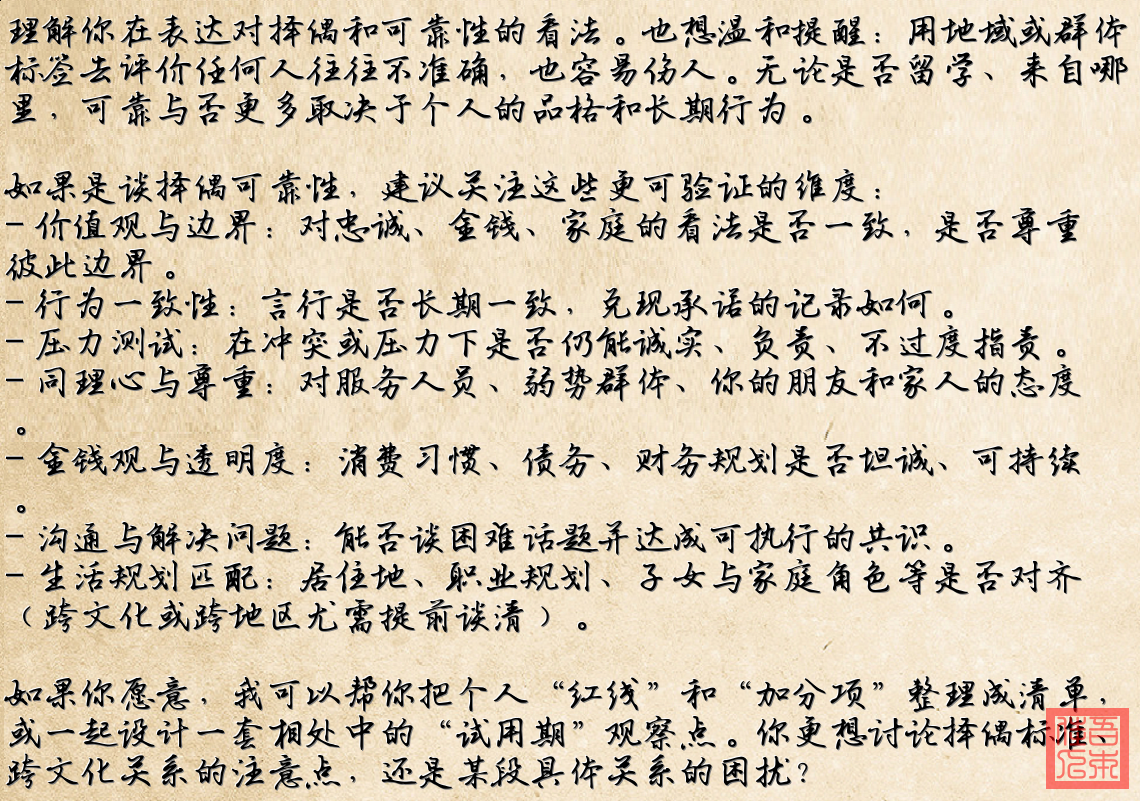 理解你在表达对择偶和可靠性的看法。也想温和提醒：用地域或群体
标签去评价任何人往往不准确，也容易伤人。无论是否留学、来自哪
里，可靠与否更多取决于个人的品格和长期行为。
如果是谈择偶可靠性，建议关注这些更可验证的维度：
- 价值观与边界：对忠诚、金钱、家庭的看法是否一致，是否尊重
彼此边界。
- 行为一致性：言行是否长期一致，兑现承诺的记录如何。
- 压力测试：在冲突或压力下是否仍能诚实、负责、不过度指责。
- 同理心与尊重：对服务人员、弱势群体、你的朋友和家人的态度
。
- 金钱观与透明度：消费习惯、债务、财务规划是否坦诚、可持续
。
- 沟通与解决问题：能否谈困难话题并达成可执行的共识。
- 生活规划匹配：居住地、职业规划、子女与家庭角色等是否对齐
（跨文化或跨地区尤需提前谈清）。
如果你愿意，我可以帮你把个人“红线”和“加分项”整理成清单，
或一起设计一套相处中的“试用期”观察点。你更想讨论择偶标准、
跨文化关系的注意点，还是某段具体关系的困扰？